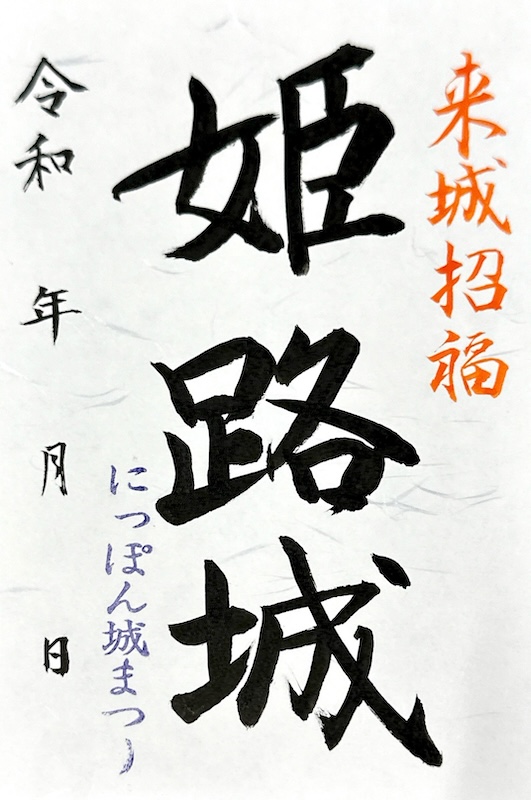 来城招福
姫路城
にっぽん城まつり
令和 年 月 日